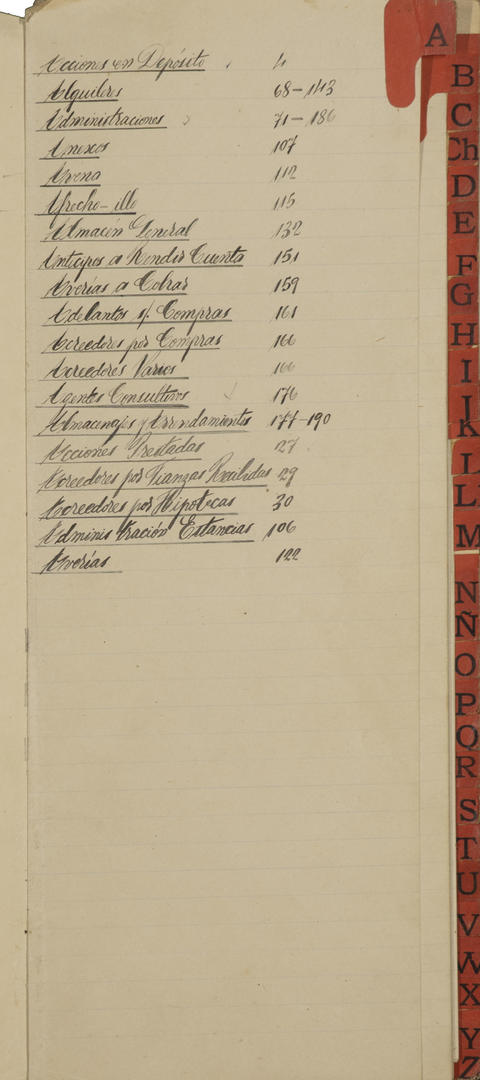 A
Acciones en Depósito 4
Alquileres 68-143
Administraciones 71-186
Anexos 107
Avena 112
Afrecho-illo 115
Almacén General 132
Anticipos a Rendir Cuenta 151
Averías a Cobrar 159
Adelantos s/. Compras 161
Acreedores por Compras 166
Acreedores Varios 166
Agentes Consultivos 176
Almacenajes y Arrendamientos 177-190
Acciones Prestadas 27
Acreedores por Fianzas Recibidas 29
Acreedores por Hipotecas 30
Administración Estancias 106
Averías 122
B
C
Ch
D
E
F
G
H
I
J
K
L
LL
M
N
Ñ
O
P
Q
R
S
T
U
V
W
X
Y
Z